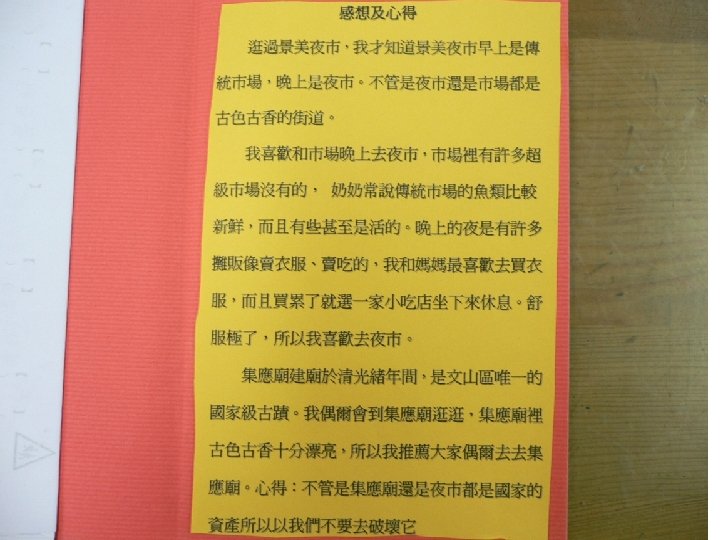 感想及心得
逛過景美夜市，我才知道景美夜市早上是傳
統市場，晚上是夜市。不管是夜市還是市場都是
古色古香的街道。
我喜歡和市場晚上去夜市，市場裡有許多超
級市場沒有的， 奶奶常說傳統市場的魚類比較
新鮮，而且有些甚至是活的。晚上的夜是有許多
攤販像賣衣服、賣吃的，我和媽媽最喜歡去買衣
服，而且買累了就選一家小吃店坐下來休息。舒
服極了，所以我喜歡去夜市。
集應廟建廟於清光緒年間，是文山區唯一的
國家級古蹟。我偶爾會到集應廟逛逛，集應廟裡
古色古香十分漂亮，所以我推薦大家偶爾去去集
應廟。心得：不管是集應廟還是夜市都是國家的
資產所以以我們不要去破壞它